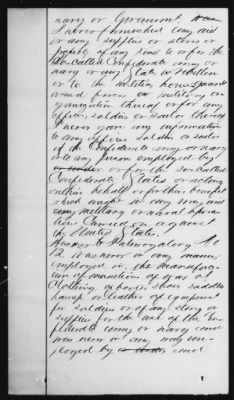 navy or Government. 
I never furnished any aid
or any supplies or stores or
property of any kind to or for the
So-called Confederate army or
navy or any State or Northern
or to the militia home guards
armed forces or military or-
ganization thereof or for any
officer soldier or sailor thereof
never gave any information
to any officer soldier or sailor
of the Confederate army or navy
or to any person employed by
or under or for the so-called
Confederate States or acting
on their behalf or for their benefit
which might in any way aid
any military or naval opera-
tions Carried on against
the United States.
Answer to Interrogatory No
12. Was never in any manner
employed in the manufac-
ture of munitions of war or
Clothing or boots shoes saddles
harness or leather or equipment
for soldiers or of any stores or
supplies for the use of the Con-
federate army or navy and
was never in any way em-
ployed by or under and